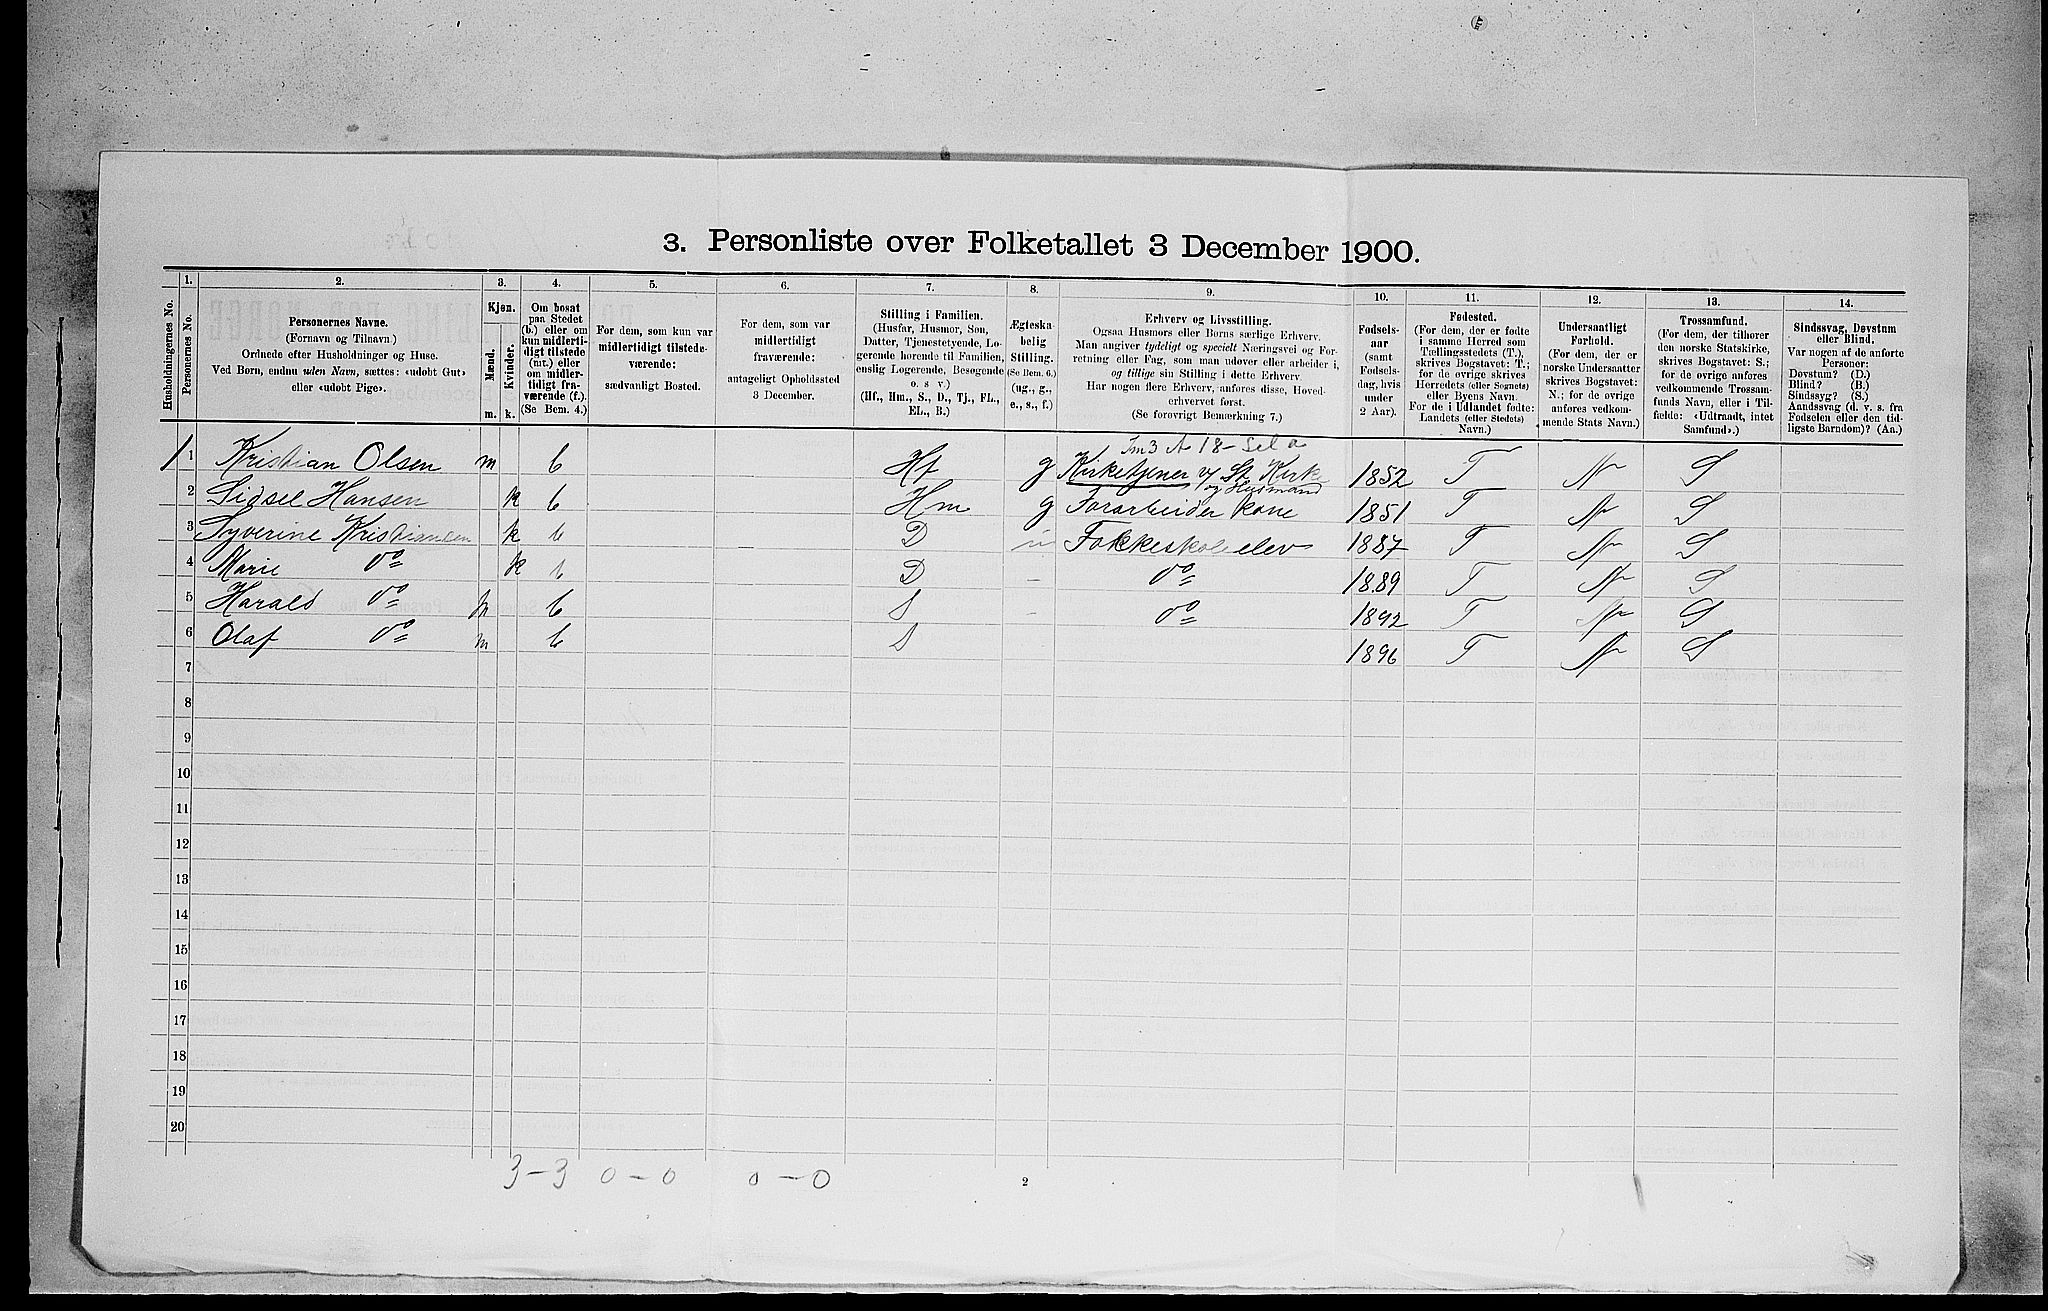 3. Personliste over Folketallet 3 December 1900.
1. 2. 3. 4. 5. 6. 7. 8. 9. 10. 11. 12. 13. 14.
Husholdningernes No.
Personernes No.
Personernes Navne.
(Fornavn og Tilnavn.)
Ordnede efter Husholdninger og Huse.
Ved Børn, endnu uden Navn, sættes: «udøbt Gut»
eller «udøbt Pige».
Kjøn.
Mænd.
Kvinder.
m. k.
Om bosat
paa Stedet
(b.) eller om
kun midlerti-
digt tilstede
(mt.) eller
om midler-
tidigt fra-
værende (f.).
(Se Bem. 4.)
For dem, som kun var
midlertidigt tilstede-
værende:
sædvanligt Bosted.
For dem, som var
midlertidigt
fraværende:
antageligt Opholdssted
3 December.
Stilling i Familien.
(Husfar, Husmor, Søn,
Datter, Tjenestetyende, Lo-
gerende hørende til Familien,
enslig Logerende, Besøgende
o. s. v.)
(Hf., Hm., S., D., Tj., FL.,
EL., B.)
Ægteska-
belig
Stilling.
(Se Bem. 6.)
(ug., g.,
e., s., f.)
Erhverv og Livsstilling.
Ogsaa Husmors eller Børns særlige Erhverv.
Man angiver tydeligt og specielt Næringsvei og For-
retning eller Fag, som man udøver eller arbeider i,
og tillige sin Stilling i dette Erhverv.
Har nogen flere Erhverv, anføres disse, Hoved-
erhvervet først.
(Se forøvrigt Bemærkning 7.)
Fødsels-
aar
(samt
Fødsels-
dag, hvis
under
2 Aar).
Fødested.
(For dem, der er fødte
i samme Herred som
Tællingsstedets (T.),
skrives Bogstavet: T.;
for de øvrige skrives
Herredets (eller Sognets)
eller Byens Navn.
For de i Udlandet fødte:
Landets (eller Stedets)
Navn.)
Undersaatligt
Forhold.
(For dem, der er
norske Undersaatter
skrives Bogstavet:
N.; for de øvrige
anføres vedkom-
mende Stats Navn.)
Trossamfund.
(For dem, der tilhører
den norske Statskirke,
skrives Bogstavet: S.;
for de øvrige anføres
vedkommende Trossam-
funds Navn, eller i Til-
fælde: «Udtraadt, intet
Samfund».)
Sindssvag, Døvstum
eller Blind.
Var nogen af de anførte
Personer:
Døvstum? (D.)
Blind? (B.)
Sindssyg? (S.)
Aandssvag (d. v. s. fra
Fødselen eller den tid-
ligste Barndom)? (Aa.)
1 1 Kristian Olsen m b Hf g Kirketjener v/ St. Kirk og Husmand 1852 T N S
2 Sidsel Hansen k b Hm g kone 1851 T N S
3 Syverine Kristiansen k b D Folkeskoleelev 1887 T N S
4 Marie do k b D - do 1889 T N S
5 Harald do m b S - do 1892 T N S
6 Olaf do m b S 1896 T N S
7
8
9
10
11
12
13
14
15
16
17
18
19
20
3-3 0-0 0-0
2